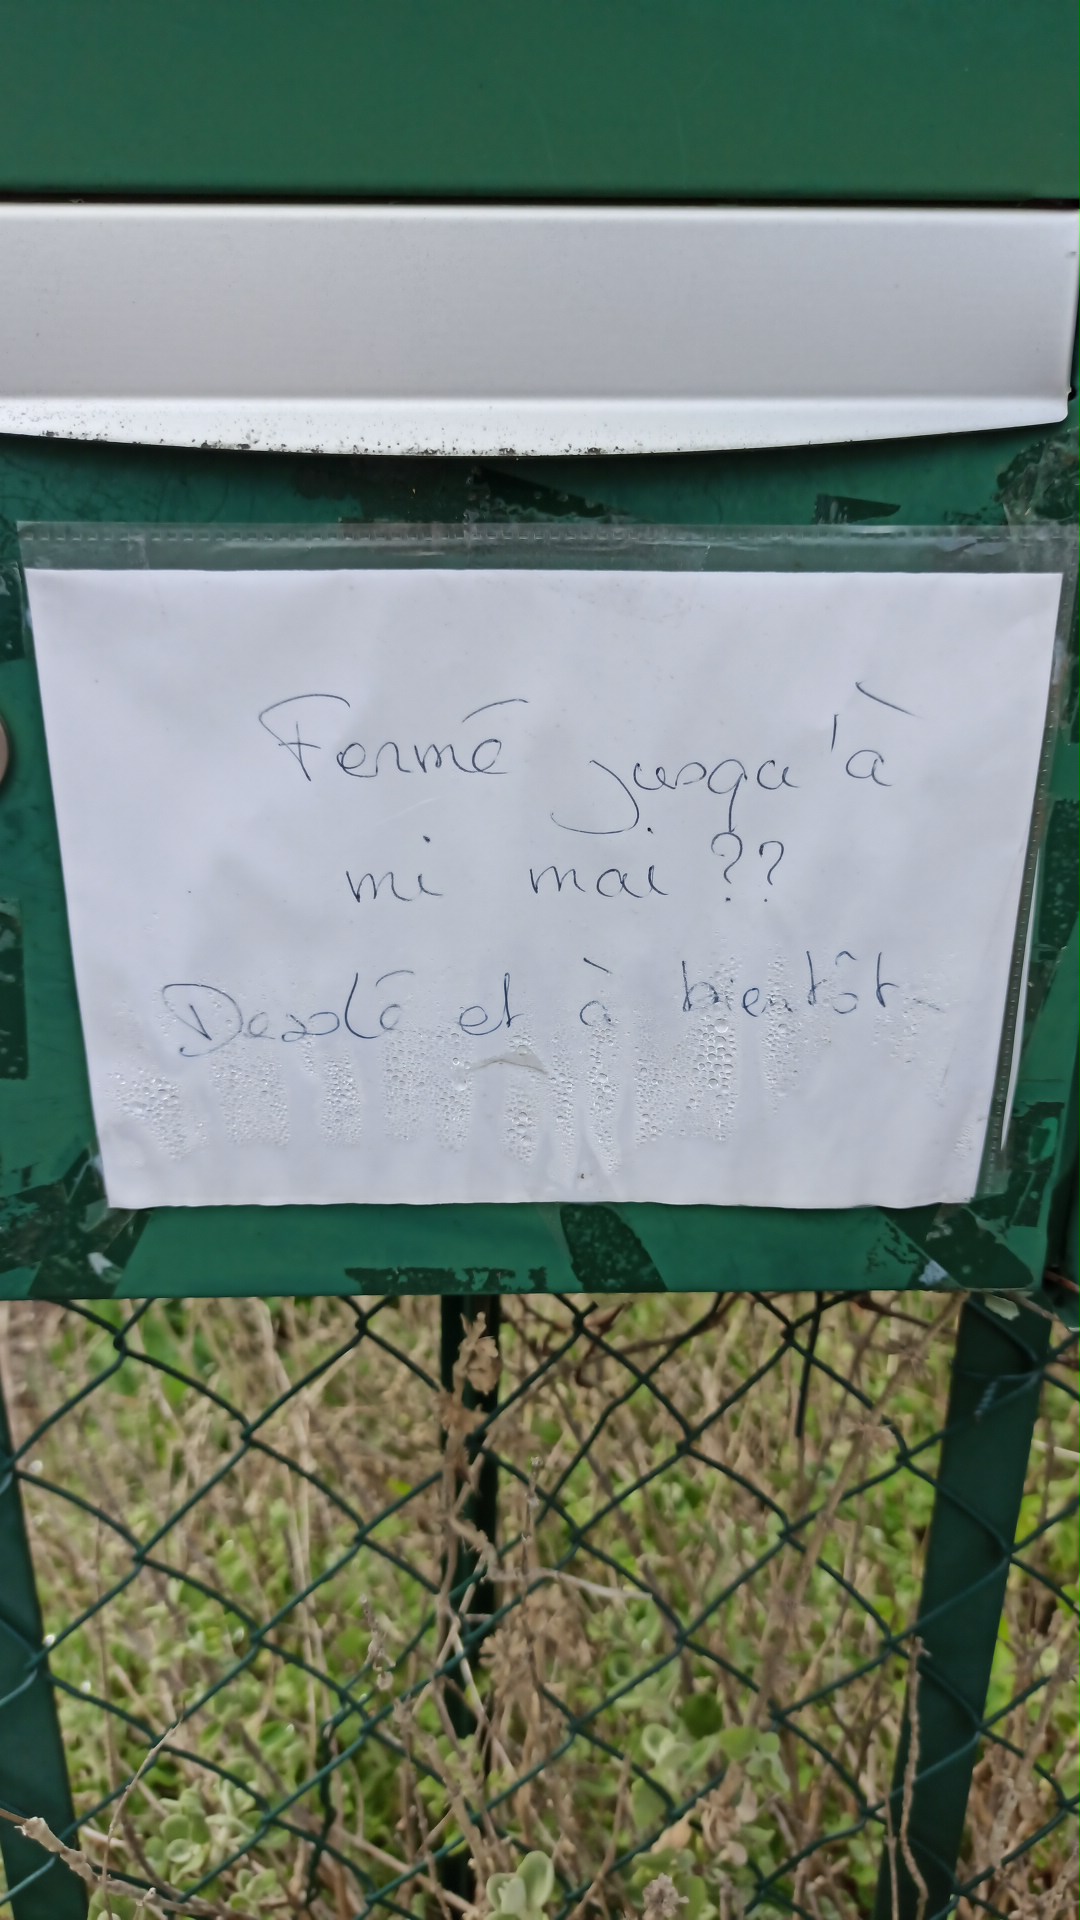 Fermé jusqu'à
mi mai ??
Desolé et à bientôt